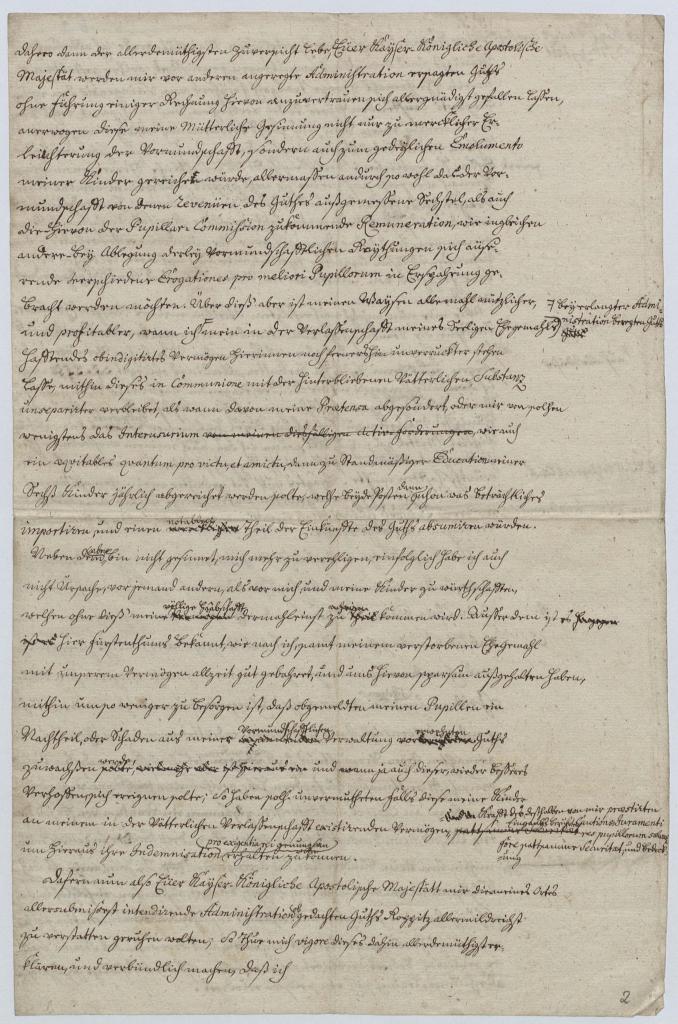 Dahero dann der allerdemüthigsten Zuversicht lebe, Euer Kayser. Königliche Apostolische
Majestät werden mir vor anderen angeregte Administration ersagten Guths
ohne Führung einiger Rechnung hievon anzuvertrauen sich allergnädigst gefallen lassen,
anerwogen diese meine Mütterliche Gesinnung nicht nur zu mercklicher Er-
leichterung der Vormundschafft, sondern auch zum gedeylichen Emolumento
meiner Kinder gereichet würde, allermassen andurch so wohl das der Vor-
mundschafft von denen Revenüen des Guthes außgemessene Sechstel, als auch
die hievon der Pupillar-Commission zukommende Remuneration, wie ingleichen
andere bey Ablegung derley Vormundschafftlichen Raythungen sich äuse-
rende verschiedene Erogationes pro meliori Pupillorum in Ersparung ge-
bracht werden möchten. Über dieß aber ist meinen Waysen allemahl nützlicher,
und profitabler, wann ich mein in der Verlassenschafft meines Seeligen Ehegemahls
bey erlangter Admi-
nistration beregten Guths
hafftendes obindigitirtes Vermögen hierinnen noch fernershin unverruckter stehen
lasse, mithin dieses in Communione mit der hinterbliebenen Vätterlichen Substanz
unseparirter verbleibet, als wann davon meine Praetensa abgesöndert, oder mir von solchen
wenigstens das Interusurium von meinen diesfälligen activ-Forderungen, wie auch
ein aequitables quantum pro victu, et amictu, dann zu Standmäßiger Education meiner
Sechs Kinder jährlich abgereichet werden solte, welche beyde Posten dann schon was beträchtliches
importiren, und einen notablen Theil der Einkünffte des Guths absumiren würden.
Neben bin nicht gesinnet, mich mehr zu verehligen, einfolglich habe ich auch
nicht Ursache, vor jemand andern, als vor mich, und meine Kinder zu würthschafften,
welchen ohne dieß meine völlige Erbschafft dermahleinst zu kommen wird. Ausser dem ist es
hier Fürstenthums bekannt, wie nach ich, samt meinem verstorbenen Ehegemahl
mit unserem Vermögen allzeit gut gebahret, und uns hievon sparsam außgehalten haben,
mithin umso weniger zu besorgen ist, daß obgemeldten meinen Pupillen ein
Nachtheil, oder Schaden aus meiner Vormundschafftlichen Verwaltung Guths
zuwachsen werde, und wann ja auch dieser, wieder besseres
Verhoffen sich ereignen solte; So haben solch-unvermutheten Falls diese meine Kinder
an meinem in der Vätterlichen Verlassenschafft existirenden Vermögen,
Krafft des desthalben von mir praestirten
Juramenti
rem pupillarem salvam
fore sattsamme Securitat, und Bedeck-
ung
um hieraus ihre Indemnisation pro exigentia genungsam erhalten zu können.
Dafern nun also Euer Kayser-Königliche Apostolische Majestätt mir die meines Ortes
allersubmissest intendirende Administration gedachten Guths Roppitz allermildreichst
zu verstatten geruhen wolten; So thue mich vigore dieses dahin allerdemüthigst er-
klären, und verbündlich machen, daß ich
2